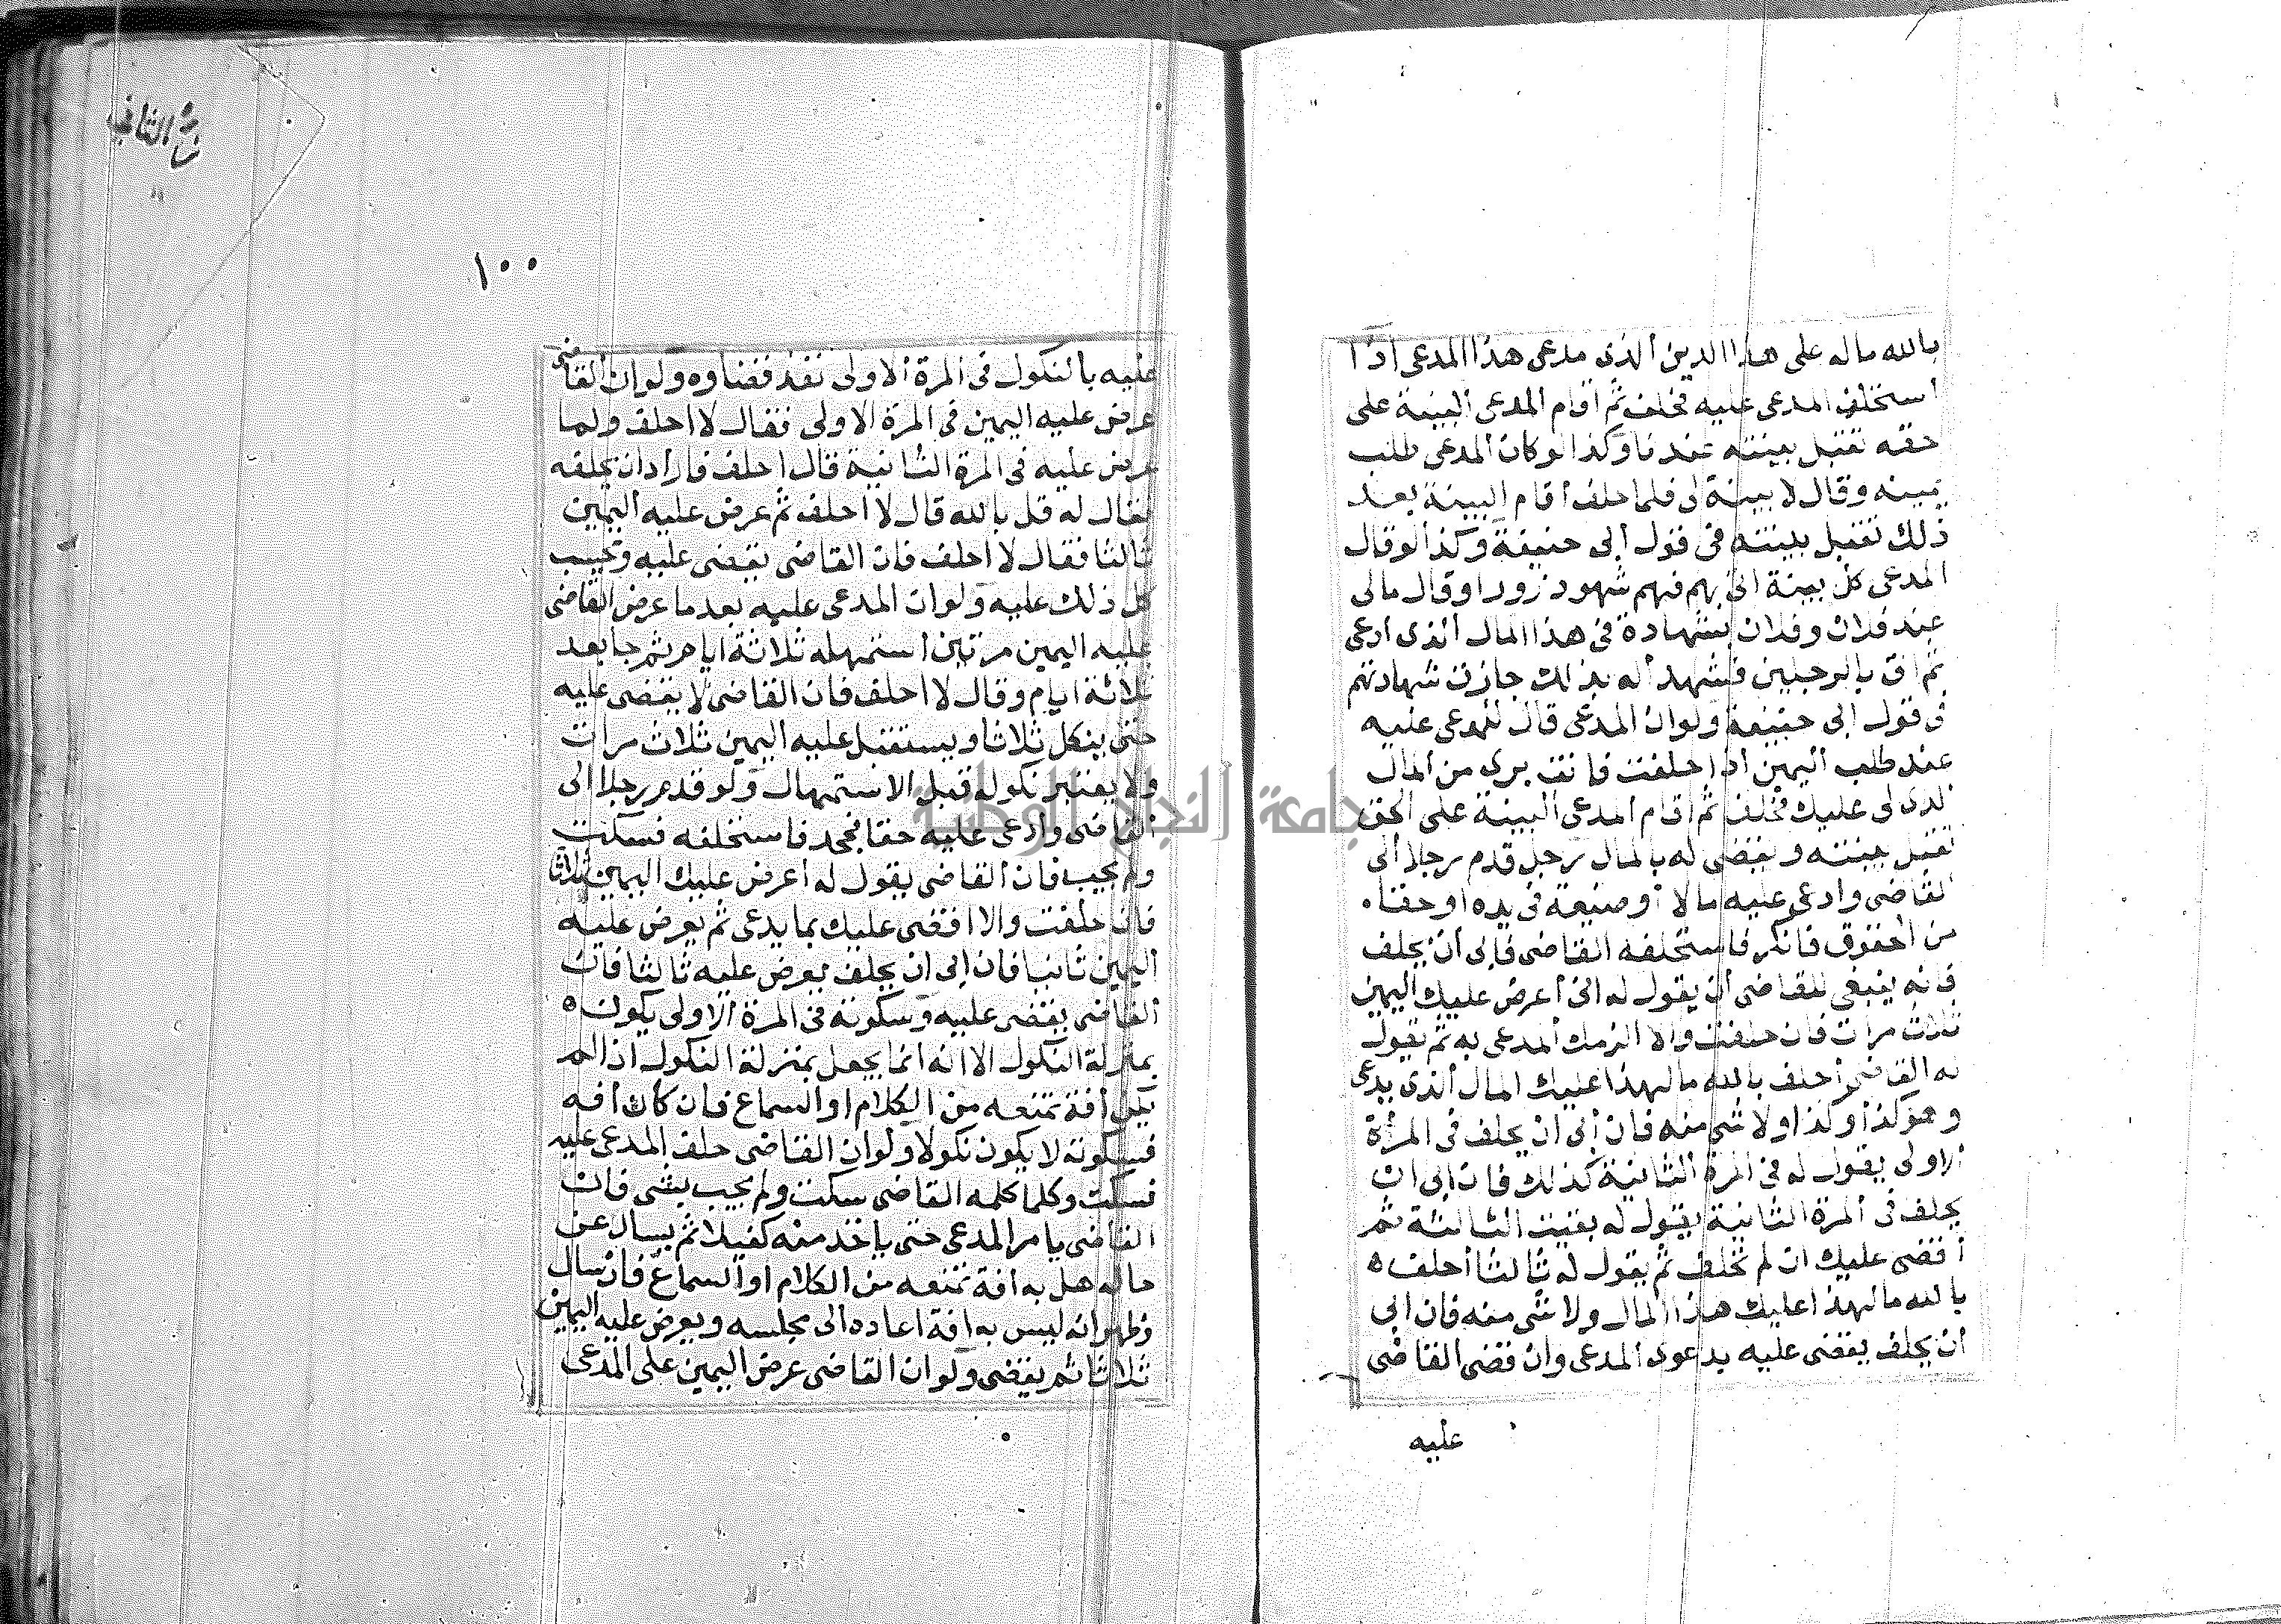 بالله ماله على هذا الدين الذى مدعى هذا المدعى اذا
استحلف المدعى عليه فحلف ثم اقام المدعى البينة على
حقه تقبل بينته عندنا وكذا لو كان المدعى طلب
يمينه وقال لا بينة لى فلما حلف اقام البينة بعد
ذلك تقبل بينته فى قول ابى حنيفة وكذا لو قال
المدعى كل بينة اتى بهم فهم شهود زور او قال مالى
عند فلان وفلان بشهادة فى هذا المال الذى ادعى
ثم اتى بالرجلين فشهد اله بذلك جازت شهادتهم
فى قول ابى حنيفة ولو ان المدعى قال للمدعى عليه
عند طلب اليمين اذا حلفت فانت برى من المال
الذى لى عليك فحلف ثم اقام المدعى البينة على الحق
تقبل بينته ويقضى له بالمال رجل قدم رجلا الى
القاضى وادعى عليه مالا أو ضيعة فى يده أو حقا ه
من الحقوق فانكر فاستحلفه القاضى فابى أن يحلف
فانه ينبغى للقاضى أن يقول له انى أعرض عليك اليمين
ثلاث مرات فان حلفت والا الزمك المدعى به ثم يقول
له القاضى أحلف بالله ما لهذا عليك المال الذى يدعى
وهو كذا وكذا ولا شى منه فان أبى ان يحلف فى المرأة
الاولى يقول له فى المرة الثانية كذلك فان ابى ان
يحلف فى المرة الثانية يقول له بقيت الثالثة ثم
أقضى عليك ان لم تحلف ثم يقول له ثالثا أحلف ه
بالله ما لهذا عليك هذا المال ولا شى منه فان ابى
أن يحلف يقضى عليه بدعوى المدعى وان قضى القاضى
عليه
١٠٠
عليه بالنكول فى المرة الاولى نفذ قضاوه ولو ان القاضى
عرض عليه اليمين فى المرة الاولى فقال لا احلف ولما
عرض عليه فى المرة الثانية قال احلف فاراد ان يحلفه
فقال له قل بالله قال لا احلف ثم عرض عليه اليمين
ثالثا فقال لا احلف فان القاضى يقضى عليه ويحسب
كل ذلك عليه ولو ان المدعى عليه بعد ما عرض القاضى
عليه اليمين مرتين استمهله ثلاثة ايام ثم جا بعد
ثلاثة ايام وقال لا احلف فان القاضى لا يقضى عليه
حتى ينكل ثلاثا ويستقبل عليه اليمين ثلاث مرات
ولا يعتبر نكوله قبل الاستمهال ولو قدم رجلا الى
القاضى وادعى عليه حقا فجحد فاستحلفه فسكت
ولم يجب فان القاضى يقول له أعرض عليك اليمين ثلاثا
فان حلفت والا اقضى عليك بما يدعى ثم يعرض عليه
اليمين ثانيا فان ابى ان يحلف يعرض عليه ثالثا فان
القاضى يقضى عليه وسكوته فى المرة الاولى يكون ه
بمنزلة النكول الا انه انما يجعل بمنزلة النكول اذا لم
يكن أفة تمنعه من الكلام او السماع فان كان أفه
فسكوته لا يكون نكولا ولو ان القاضى حلف المدعى عليه
فسكت وكلما كلمه القاضى سكت ولم يجب بشى فان
القاضى يامر المدعى حتى ياخذ منه كفيلا ثم يسال عن
حاله هل به افة تمنعه من الكلام او السماع فان سال
وظهر انه ليس به افة اعاده الى مجلسه ويعرض عليه اليمين
ثلاثا ثم يقضى ولو ان القاضى عرض اليمين على المدعى
جامعة النجاح الوطنية